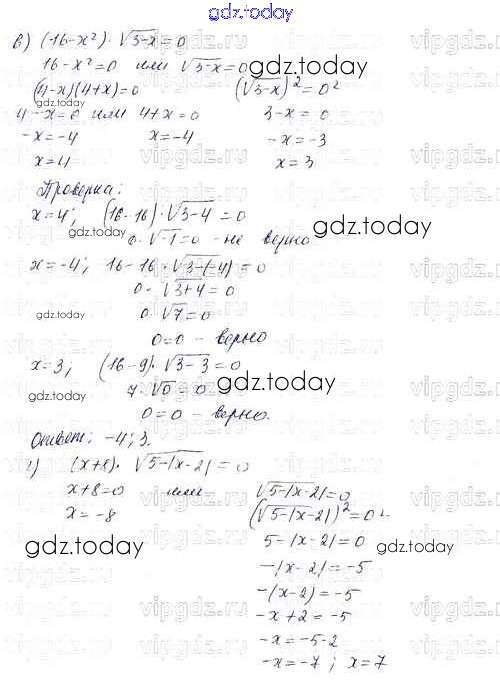 gdz.today
в) (16-x²)·√3-x=0
16-x²=0 или √3-x=0
gdz.today
(4-x)(4+x)=0 (√3-x)²=0²
4-x=0 или 4+x=0 3-x=0
-x=-4 x=-4 -x=-3
x=4 x=3
Проверка:
x=4; (16-16)·√3-4=0
gdz.today
0·√-1=0 - не верно
gdz.today
x=-4; 16-16·√3-(-4)=0
0·√3+4=0
gdz.today
0·√7=0
0=0 - верно
x=3; (16-9)·√3-3=0
7·√0=0
gdz.today
gdz.today
0=0 - верно.
Ответ: -4; 3.
г) (x+8)·√5-|x-2|=0
x+8=0 или √5-|x-2|=0
x=-8 (√5-|x-2|)²=0²
5-|x-2|=0
gdz.today
gdz.today
-|x-2|=-5
-(x-2)=-5
-x+2=-5
-x=-5-2
-x=-7; x=7
vipgdz.ru